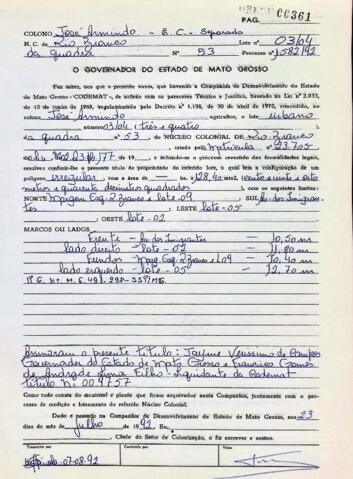 PAG. 00361
COLONO José Armindo - E.C. - Separado
N. C. de Rio Branco Lote nº 03/04
da quadra Nº 53 Processo nº 1.582/92
O GOVERNADOR DO ESTADO DE MATO GROSSO
Faz saber, aos que o presente virem, que havendo a Companhia de Desenvolvimento do Estado
de Mato Grosso - CODEMAT, de acordo com os pareceres Técnico e Jurídico, baseado na Lei nº 2.933,
de 10 de junho de 1969, regulamentada pelo Decreto nº 1.138, de 30 de abril de 1970, concedido, ao
colono, José Armindo agricultor, o lote urbano
número 03/04, três e quatro
da quadra nº 53, do NÚCLEO COLONIAL DE Rio Branco
criado pela matrícula nº 23.705
e achando-se o processo revestido das formalidades legais,
resolveu conferir-lhe o presente título de propriedade do referido lote, o qual tem a configuração de um
polígono irregular com a área de 128,40 mts2, cento e vinte e oito
metros e quarenta decímetros quadrados com os seguintes limites:
NORTE Margem Cor. R. Branco e lote-09 SUL Av. dos Imigran-
tes LESTE lote-05
OESTE lote-02
MARCOS OU LADOS
Frente - Av. dos Imigrantes - 10,50 m
lado direito - lote-02 - 11,80 m
Fundos - Marg. Cor. R. Branco e L09 - 10,40 m
lado esquerdo - lote-05 - 12,70 m
Assinaram o presente título: Jayme Verissimo de Campos
Governador do Estado de Mato Grosso e Francisco Gomes
de Andrade Lima Filho - Liquidante da Codemat
Título Nº 009757
Como tudo consta do memorial e planta que ficam arquivados nesta Companhia, juntamente com o pro-
cesso de medição e loteamento do referido Núcleo Colonial.
Dado e passado na Companhia de Desenvolvimento do Estado de Mato Grosso, aos 23
dias do mês de julho de 1992. Eu,
Chefe do Setor de Colonização, o fiz escrever e assino.
Transcrito por
Conferido por
Visto
07-08-92